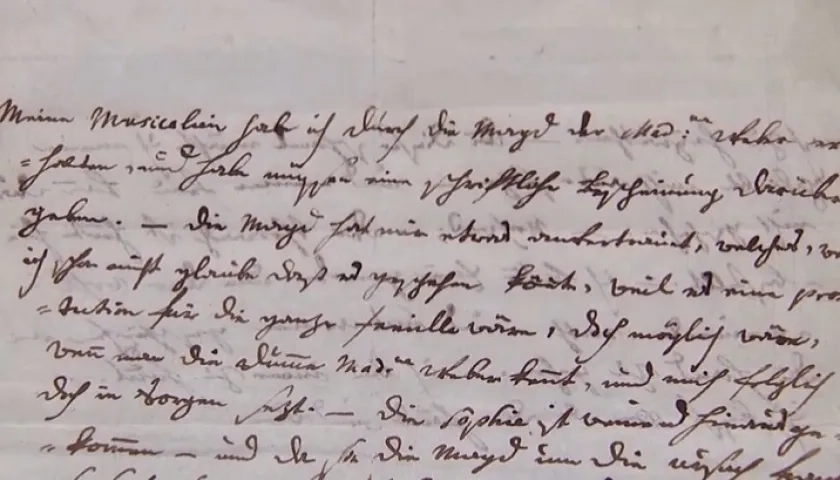 Meine Musicalien habe ich durch die Magd der Mad:me Weber er
=halten, und habe müssen eine schriftliche Bescheinung darüber
geben. — die Magd hat mir etwas anvertrauet, welches, we
ich schon nicht glaube daß es geschehen könte, weil es eine pros
=titution für die ganze familie wäre, doch möglich wäre,
wen man die dumme Mad:me Weber kennt, und mich folglich
doch in Sorgen setzt. — die Sophie ist weinend hinausge
=kommen — und da sie die Magd um die ursach